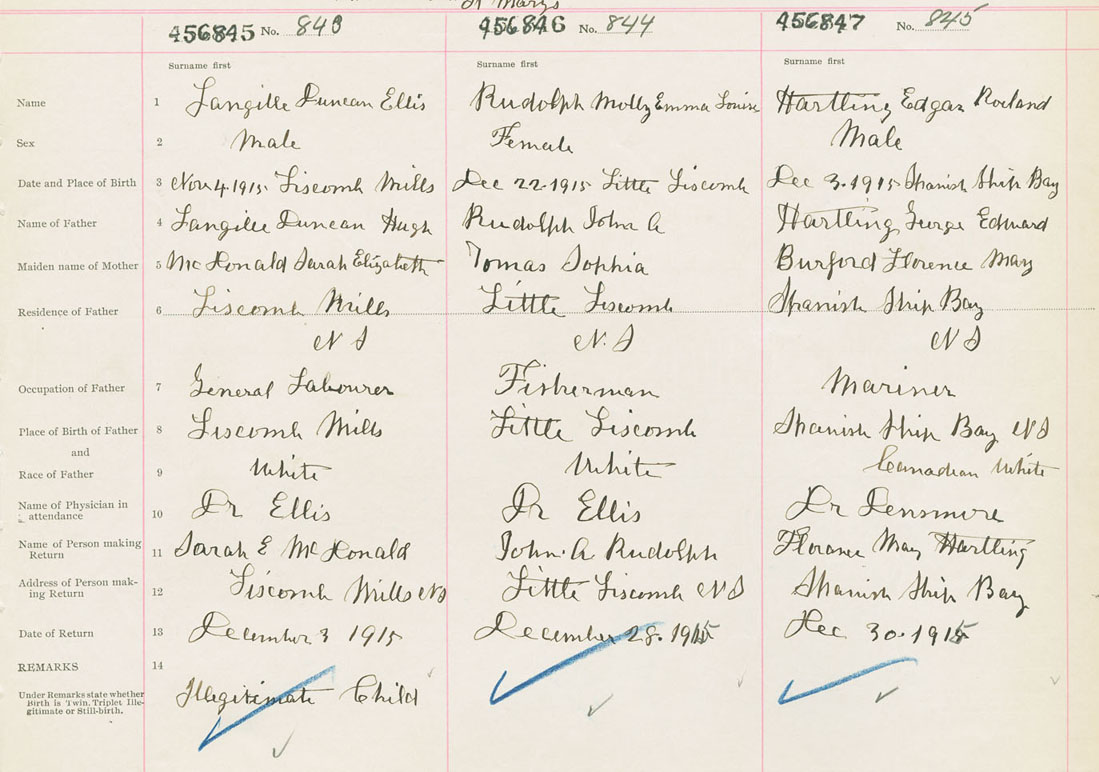 St Marys
456845 No. 843 456846 No. 844 456847 No. 845
Surname first Surname first Surname first
Name 1 Langille Duncan Ellis Rudolph Molly Emma Louise Hartling Edgar Roland
Sex 2 Male Female Male
Date and Place of Birth 3 Nov 4. 1915 Liscomb Mills Dec 22. 1915 Little Liscomb Dec 3. 1915 Spanish Ship Bay
Name of Father 4 Langille Duncan Hugh Rudolph John A Hartling George Edward
Maiden name of Mother 5 McDonald Sarah Elizabeth Tomas Sophia Burford Florence May
Residence of Father 6 Liscomb Mills Little Liscomb Spanish Ship Bay
N S N. S N S
Occupation of Father 7 General Labourer Fisherman Mariner
Place of Birth of Father 8 Liscomb Mills Little Liscomb Spanish Ship Bay N S
and
Race of Father 9 White White Canadian White
Name of Physician in
attendance 10 Dr Ellis Dr Ellis Dr Densmore
Name of Person making
Return 11 Sarah E McDonald John. A Rudolph Florence May Hartling
Address of Person mak-
ing Return 12 Liscomb Mills NS Little Liscomb N S Spanish Ship Bay
Date of Return 13 December 3 1915 December 28. 1915 Dec 30. 1915
REMARKS 14
Under Remarks state whether
Birth is Twin, Triplet Ille-
gitimate or Still-birth. Illegitimate Child